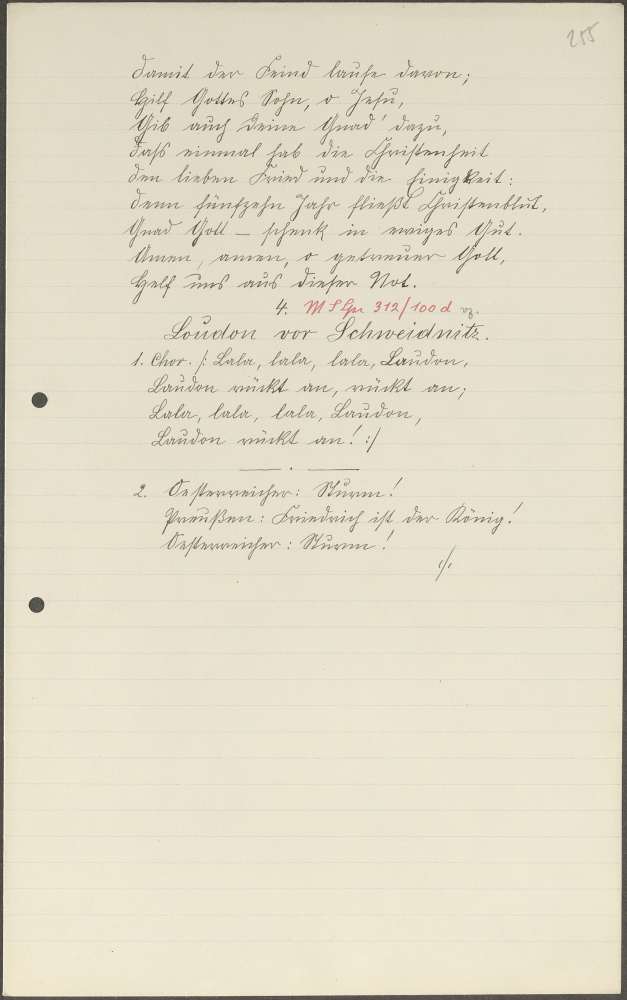 255
Damit der Feind laufe davon;
Hilf Gottes Sohn, o Jesu,
Gib auch Deine Gnad' dazu,
Daß einmal hab die Christenheit
Den lieben Fried und die Einigkeit:
Denn fünfzehn Jahr fließt Christenblut,
Gnad Gott – schenk in ewiges Gut.
Amen, amen, o getreuer Gott,
Helf uns aus dieser Not.
4. M S Gr 312/100 d
Loudon vor Schweidnitz.
1. Chor. /: Lala, lala, lala, Laudon,
Laudon rückt an, rückt an;
Lala, lala, lala, Laudon,
Laudon rückt an! :/
2. Oesterreicher: Sturm!
Preußen: Friedrich ist der König!
Oesterreicher: Sturm!